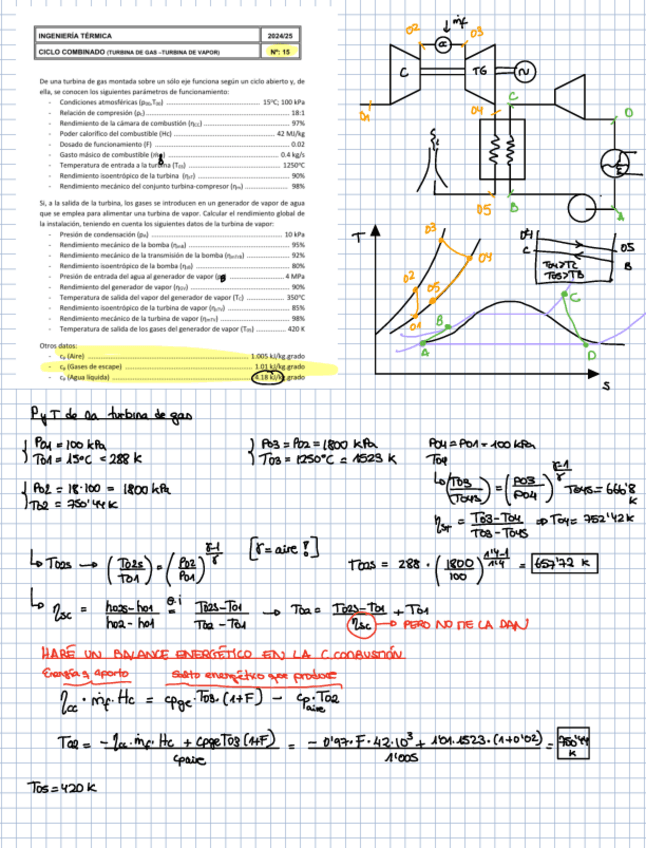 INGENIERÍA TÉRMICA 2024/25
CICLO COMBINADO (TURBINA DE GAS –TURBINA DE VAPOR) Nº: 15
De una turbina de gas montada sobre un sólo eje funciona según un ciclo abierto y, de
ella, se conocen los siguientes parámetros de funcionamiento:
- Condiciones atmosféricas (p01,T01) 15ºC; 100 kPa
- Relación de compresión (ρc) 18:1
- Rendimiento de la cámara de combustión (ηcc) 97%
- Poder calorífico del combustible (Hc) 42 MJ/kg
- Dosado de funcionamiento (F) 0.02
- Gasto másico de combustible 0.4 kg/s
- Temperatura de entrada a la turbina (T03) 1250ºC
- Rendimiento isoentrópico de la turbina 90%
- Rendimiento mecánico del conjunto turbina-compresor (ηm) 98%
Si, a la salida de la turbina, los gases se introducen en un generador de vapor de agua
que se emplea para alimentar una turbina de vapor. Calcular el rendimiento global de
la instalación, teniendo en cuenta los siguientes datos de la turbina de vapor:
- Presión de condensación 10 kPa
- Rendimiento mecánico de la bomba 95%
- Rendimiento mecánico de la transmisión de la bomba 92%
- Rendimiento isoentrópico de la bomba 80%
- Presión de entrada del agua al generador de vapor 4 MPa
- Rendimiento del generador de vapor 90%
- Temperatura de salida del vapor del generador de vapor (TC) 350ºC
- Rendimiento isoentrópico de la turbina de vapor 85%
- Rendimiento mecánico de la turbina de vapor 98%
- Temperatura de salida de los gases del generador de vapor 420 K
Otros datos:
- cp (Aire) 1.005 kJ/kg.grado
- cp (Gases de escape) 1.01 kJ/kg.grado
- cp (Agua líquida) 4.18 kJ/kg.grado
02 ṁf 03
cc
C TG N
01 04 C D
05 B A
T 03 04 02 05 01 B A C D S
04 C 05 B
T04>TC
T05>TB
P y T de la turbina de gas
P01 = 100 kPa
T01 = 15ºC = 288 K
P03 = P02 = 1800 kPa
T03 = 1250ºC = 1523 K
P04 = P01 = 100 kPa
T04
P02 = 18·100 = 1800 kPa
T02 = 750'44 K
(T03/T04s) = (P03/P04)^(γ-1/γ) T04s = 666'8 K
ηsT = T03-T04 / T03-T04s ⇒ T04 = 752'42 K
T02s → (T02s/T01) = (P02/P01)^(γ-1/γ) [γ = aire !]
T02s = 288 · (1800/100)^(1'4-1/1'4) = 657'72 K
ηsc = h02s-h01 / h02-h01 = T02s-T01 / T02-T01 → T02 = T02s-T01 / ηsc + T01
→ PERO NO ME LA DAN
HARÉ UN BALANCE ENERGÉTICO EN LA C.COMBUSTIÓN
Energía q aporto Salto energético que produce
ηcc · ṁf · Hc = cpge · T03 · (1+F) - cp aire · T02
T02 = -ηcc · ṁf · Hc + cpge T03 (1+F) / cpaire = -0'97 · F · 42·10³ + 1'01 · 1523 · (1+0'02) / 1'005 = 750'44 K
T05 = 420 K